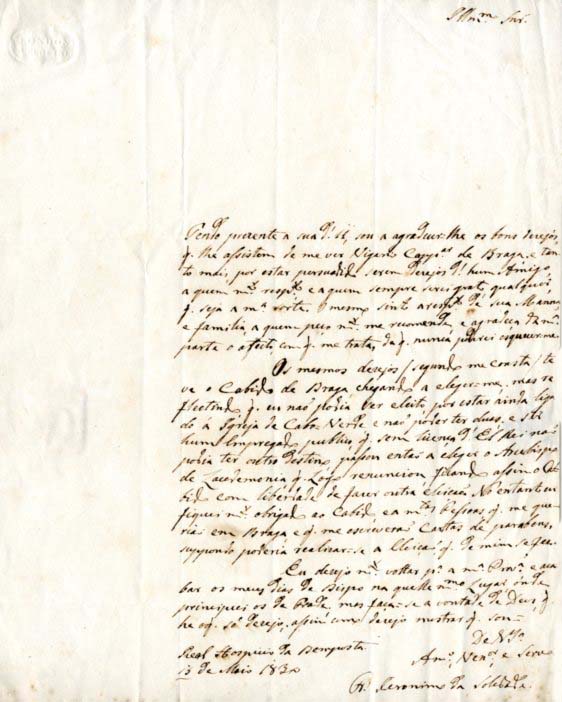 Illm.º Snr.
Tendo prezente a sua d' 11, sou a agradecer-lhe os bons desejos,
q. lhe assistem de me ver Vigario Cap. de Braga, e tan
to mais, por estar persuadido serem desejos d' hum Amigo,
a quem m.to respeito e a quem sempre serei grato qualquer
q. seja a m.ª sorte. O mesmo sinto a respeito de sua Manna,
e familia a quem peço m.to me recomende, e agradeça da m.ª
parte o afecto, com q. me tratas, da q. nunca poderei esquecer-me
Os mesmos desejos (segundo me consta) te
ve o Cabido de Braga chegando a eleger-me, mas re
flectindo q. eu não podia ser eleito por estar ainda liga
do á Igreja de Cabo Verde e não poder ter duas, e ser
hum Empregado publico q. sem licença d' El Rei não
podia ter outro destino, passou então a eleger o Arcebispo
de Lacedemonia q. logo renunciou ficando assim o Ca
bido com liberdade de fazer outra eleição. No entanto eu
fiquei m.to obrigado ao Cabido e a m.tas pessoas q. me que
rião em Braga e q. me escreverão Cartas de parabens,
suppondo poderia realizar-se a Eleição q. de mim se fez
Eu desejo m.to voltar p.ª a m.ª Prov.ª e aca
bar os meus dias de Bispo naquelle mmo lugar onde
principiei os de Frade, mas faça-se a vontade de Deus, q.
he o q. só desejo, assim como desejo mostrar q. sou
De V. S.ª
Am.º Ven.or e Servo
Real Hospicio da Bemposta
13 de Maio 1830
Fr. Jeronimo da Soledade.